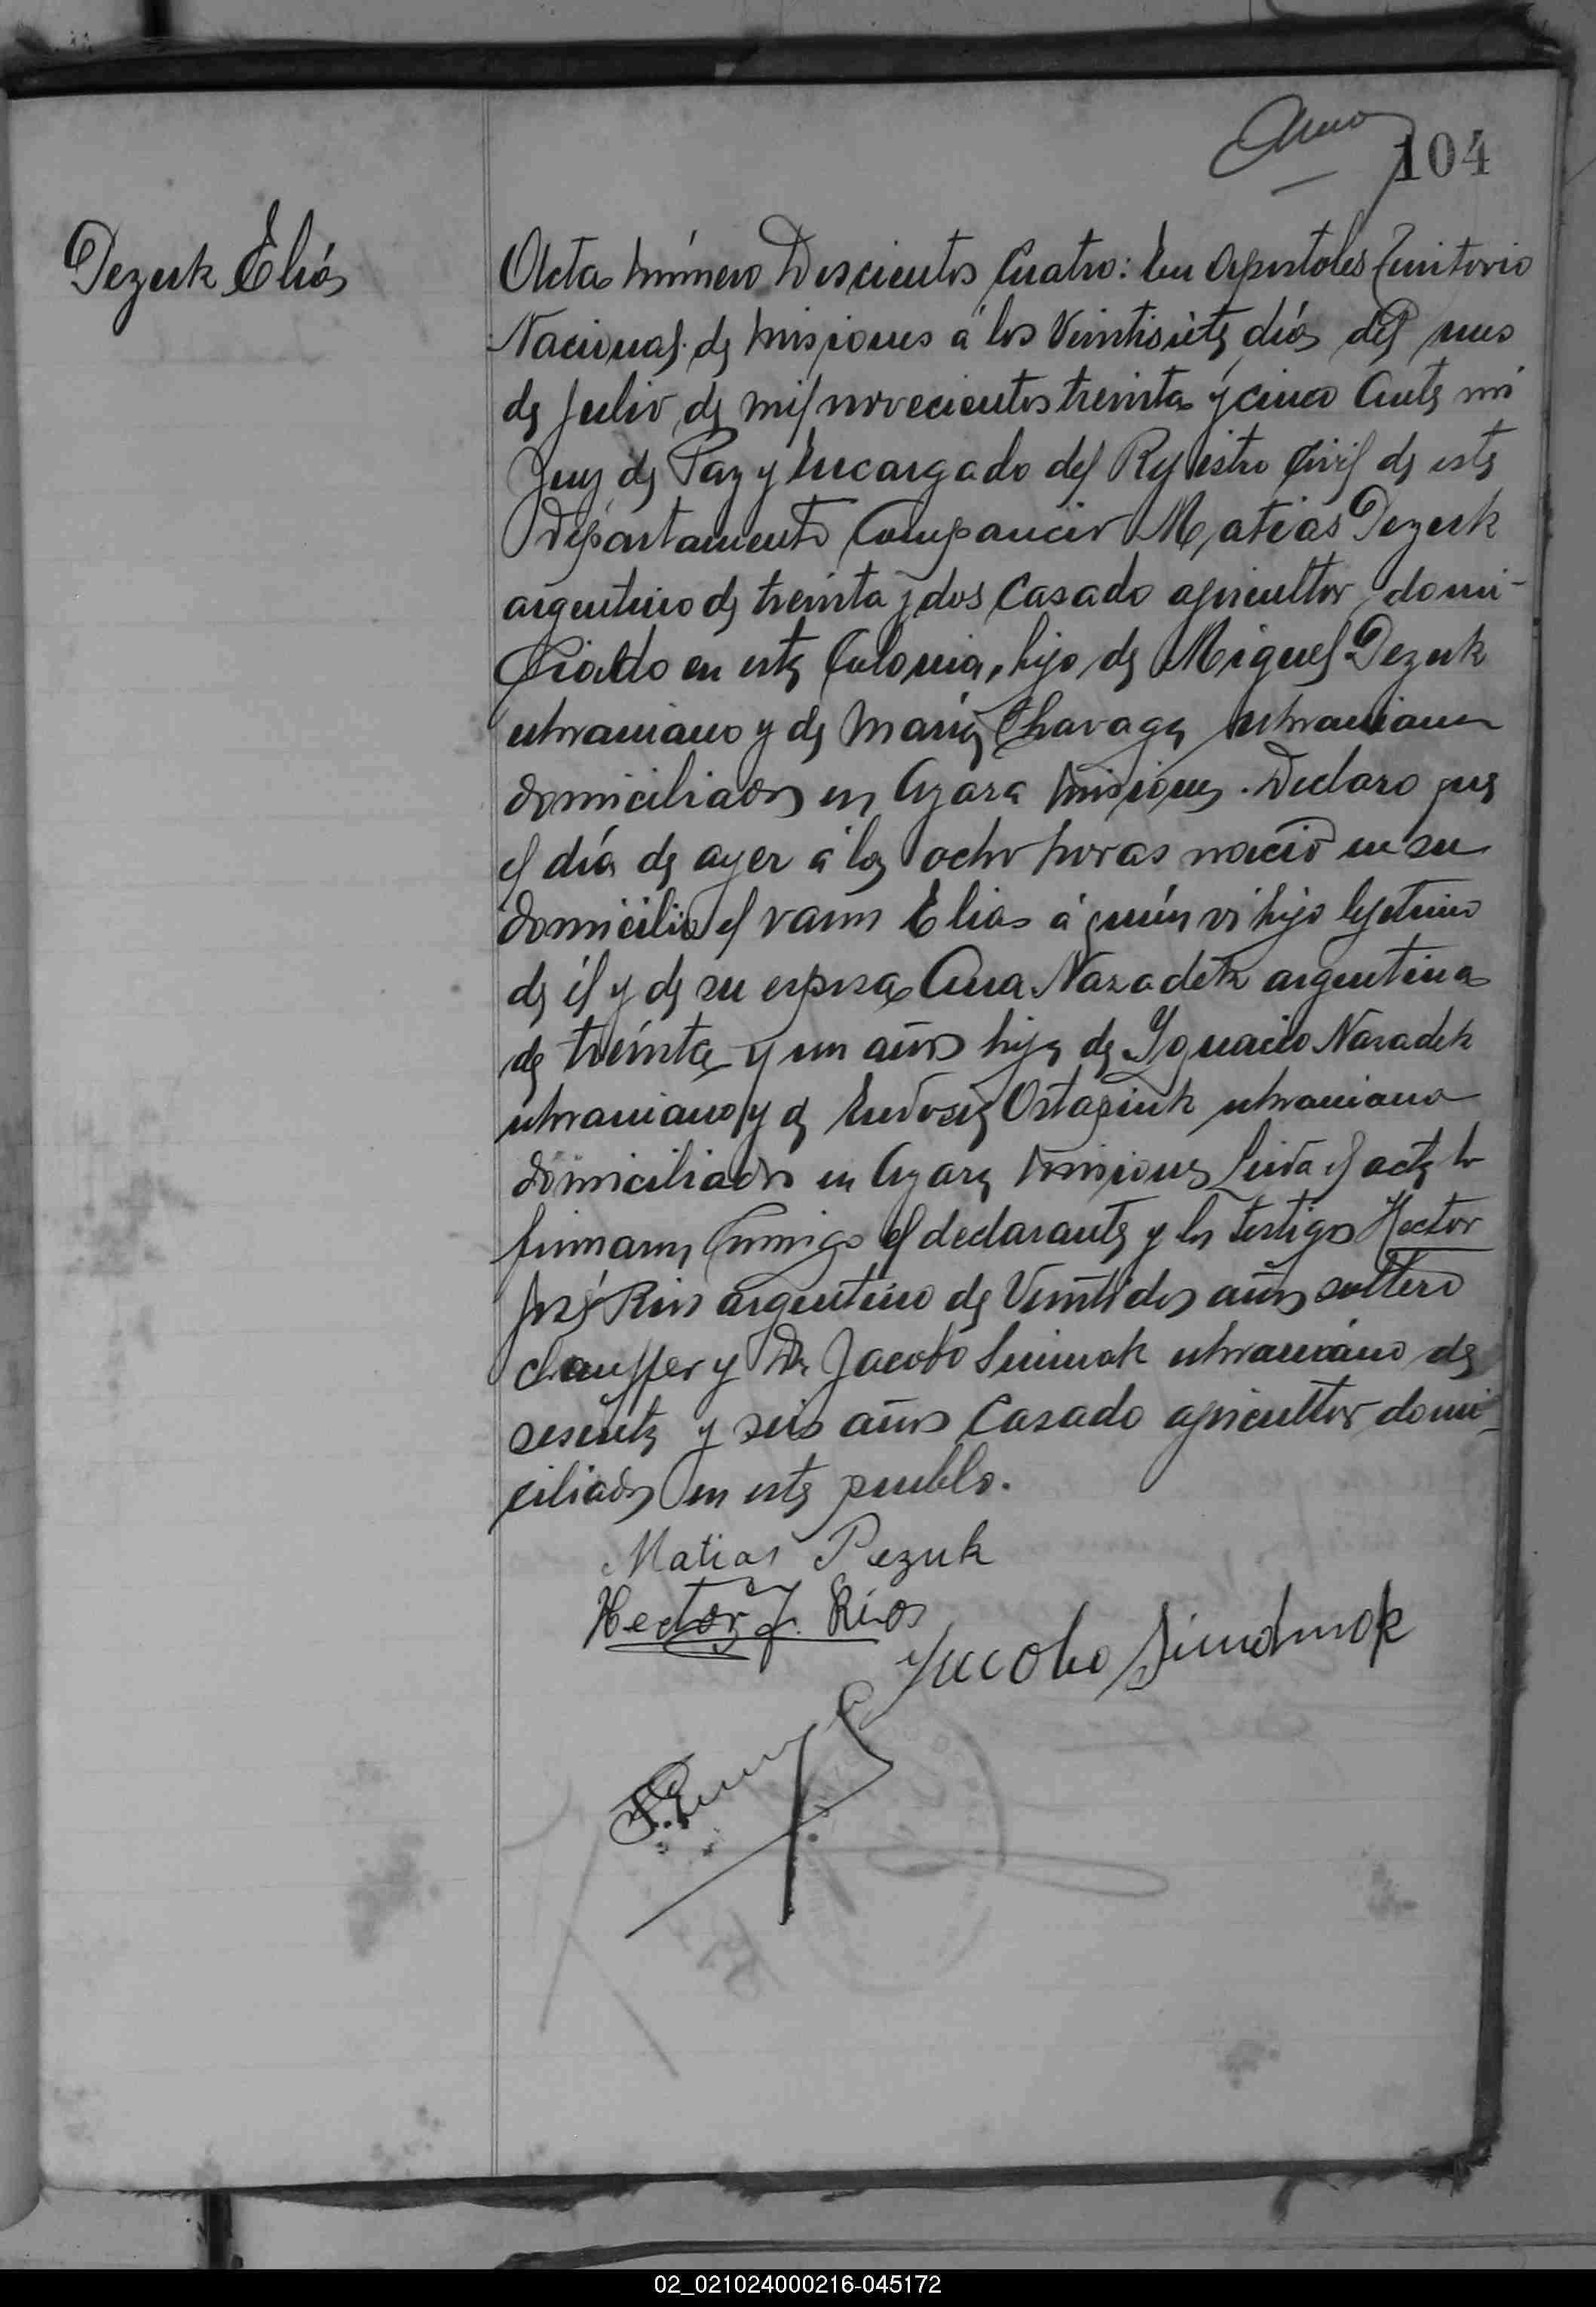 104
Pezuk Elías
Acta número Doscientos Cuatro: En Apostoles Territorio
Nacional de Misiones á los Veintisiete días del mes
de Julio de mil novecientos treinta y cinco Ante mi
Juez de Paz y Encargado del Registro Civil de este
Departamento Compareció Matias Pezuk
argentino de treinta y dos Casado agricultor, domi-
ciliado en esta Colonia, hijo de Miguel Pezuk
ukraniano y de María ukraniana
domiciliados en Azara Misiones. Declaro que
el día de ayer á las ocho horas nació en su
domicilio el varon Elias á quién vi hijo lejetimo
de él y de su esposa Ana Nazadek argentina
de treinta y un años hija de Ygnacio Nazadek
ukraniano y de Ostapiuk ukraniana
domiciliados en Azara Misiones Leida el acta la
firmaron Conmigo el declarante y los testigos Hector
José Rios argentino de Veintidos años soltero
chauffer y Dn Jacobo ukraniano de
sesenta y seis años Casado agricultor domi-
ciliados en este pueblo.
Matias Pezuk
Hector J. Rios
Jacobo
02_021024000216-045172